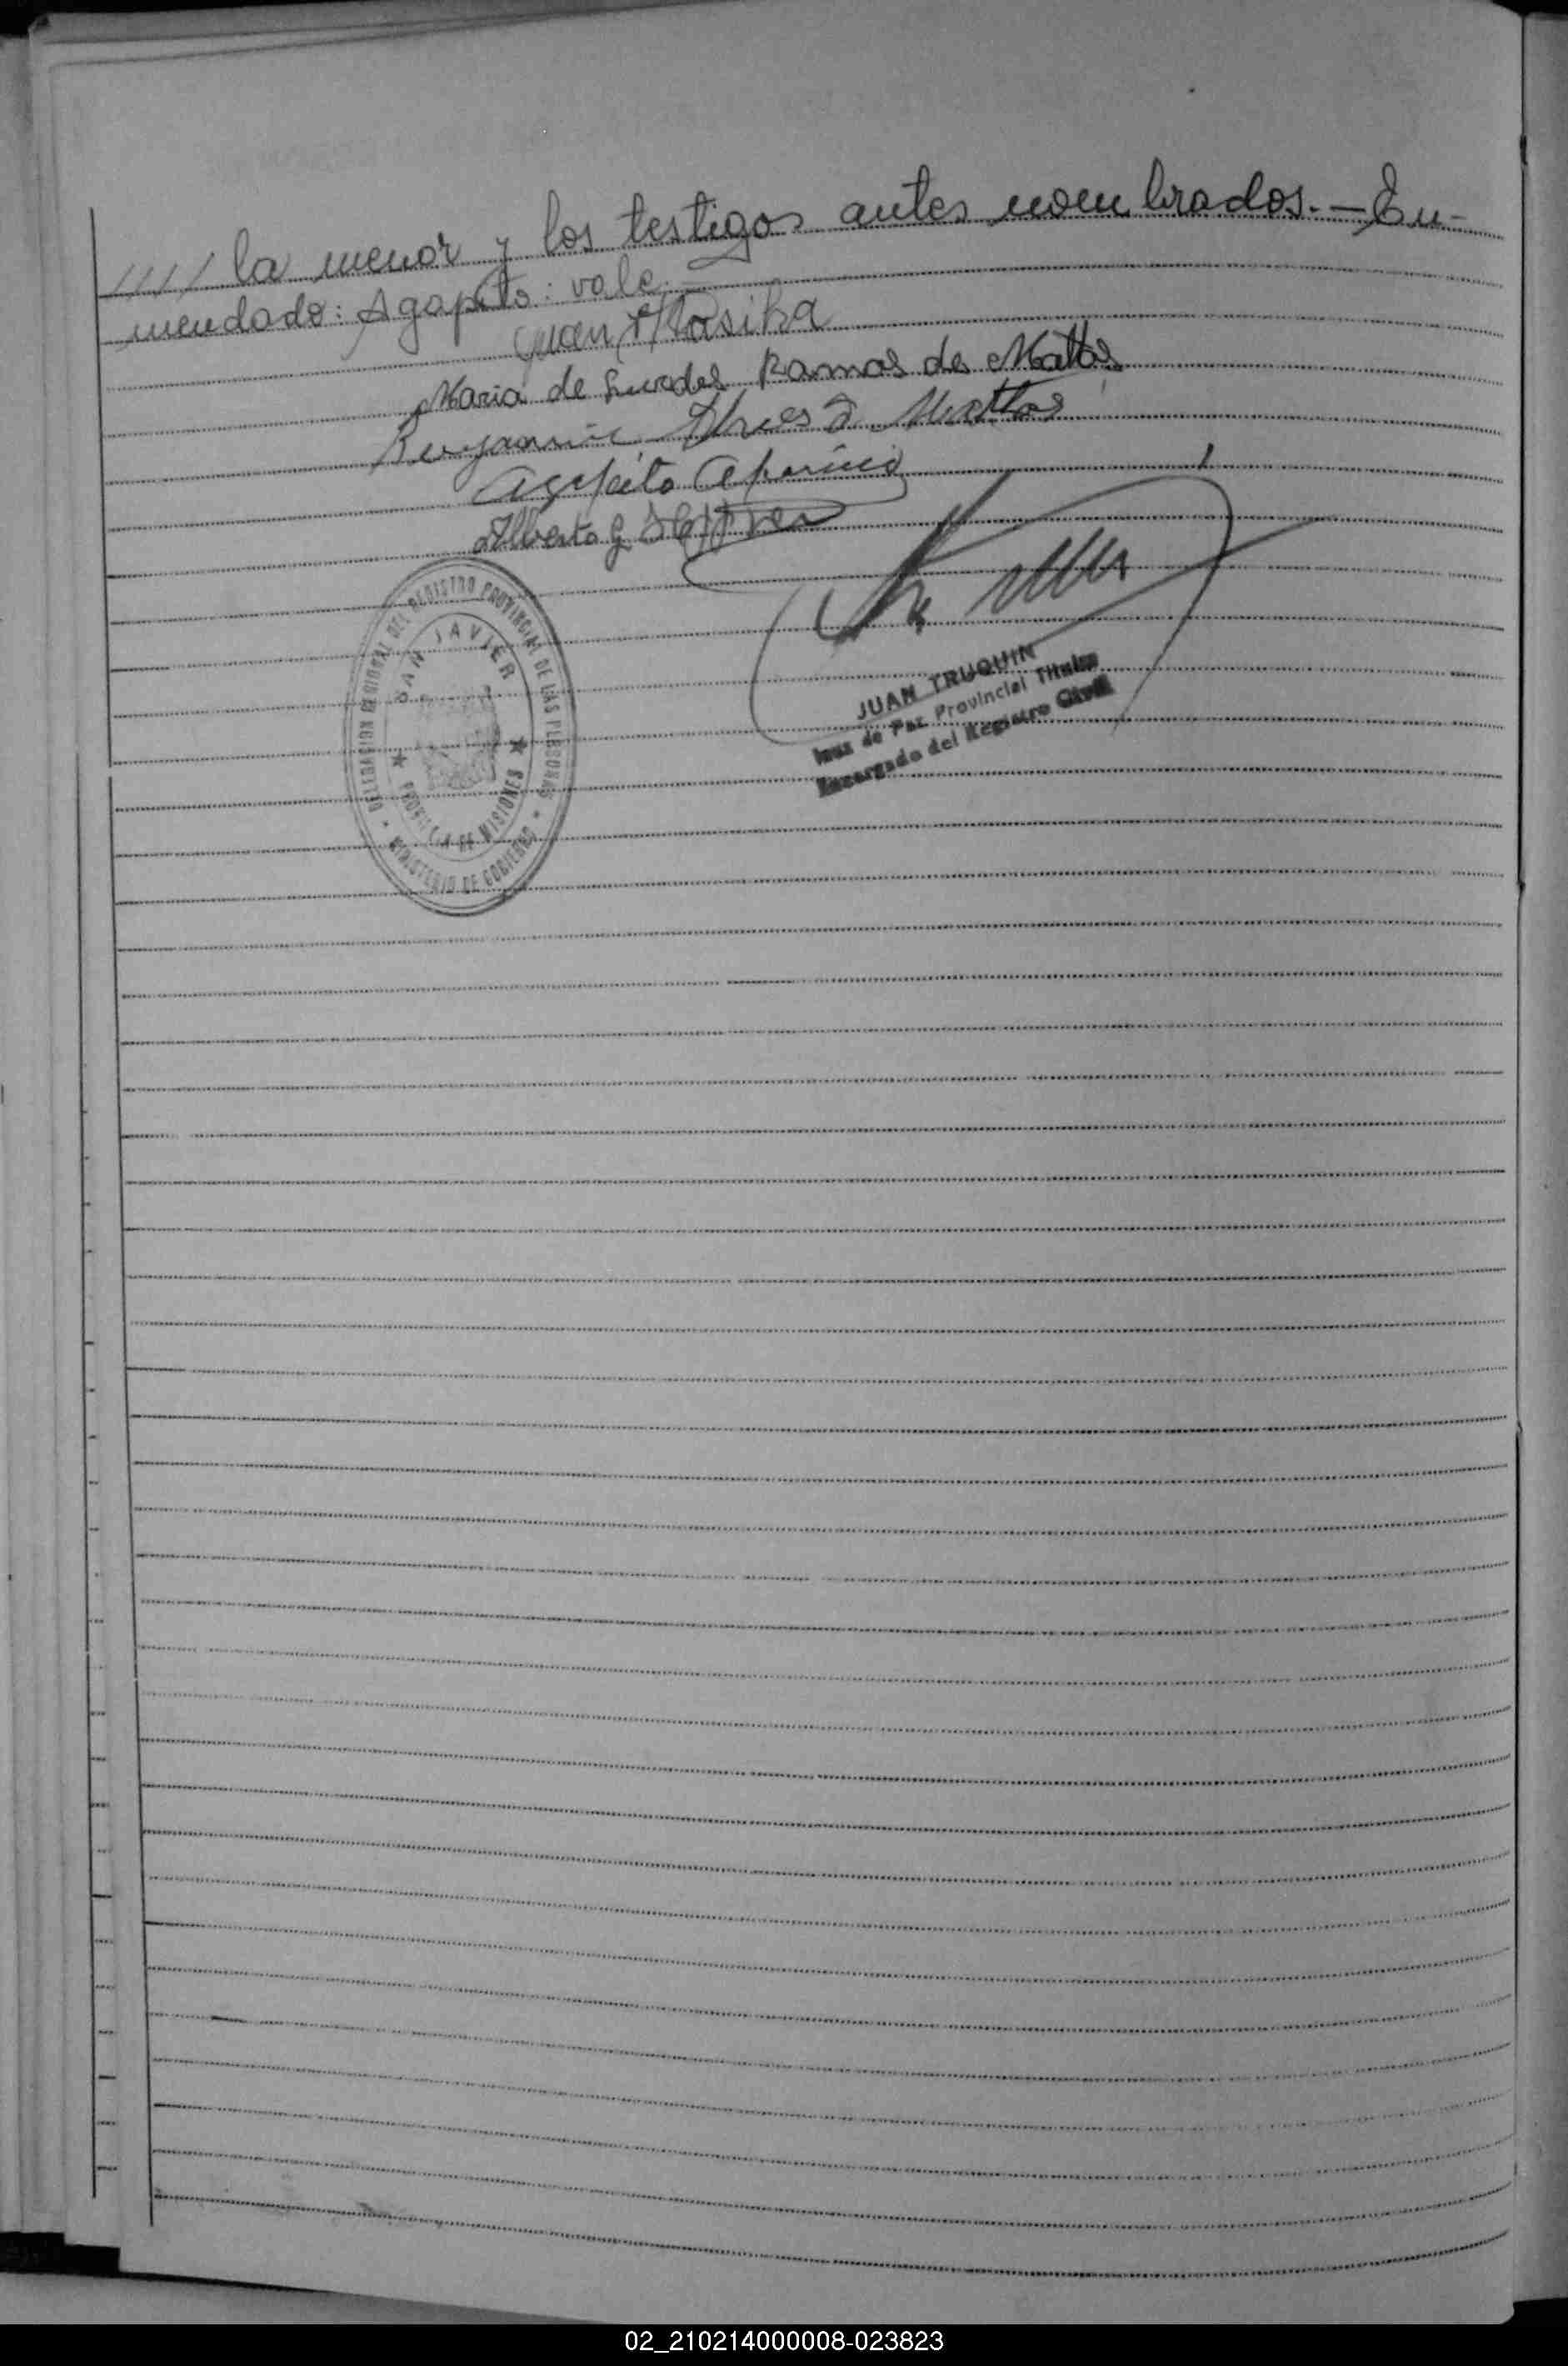 ///// la menor y los testigos antes nombrados.- En-
mendado: Agapito: vale.-
Juan Masika
Maria de Lurdes Ramos de Mattos
Benjamin Alves D Mattos
Agapito Aparicio
Alberto G
DELEGACION REGIONAL DEL REGISTRO PROVINCIAL DE LAS PERSONAS
SAN JAVIER
PROVINCIA DE MISIONES
MINISTERIO DE GOBIERNO
JUAN TRUQUIN
Juez de Paz Provincial Titular
Encargado del Registro Civil
02_210214000008-023823